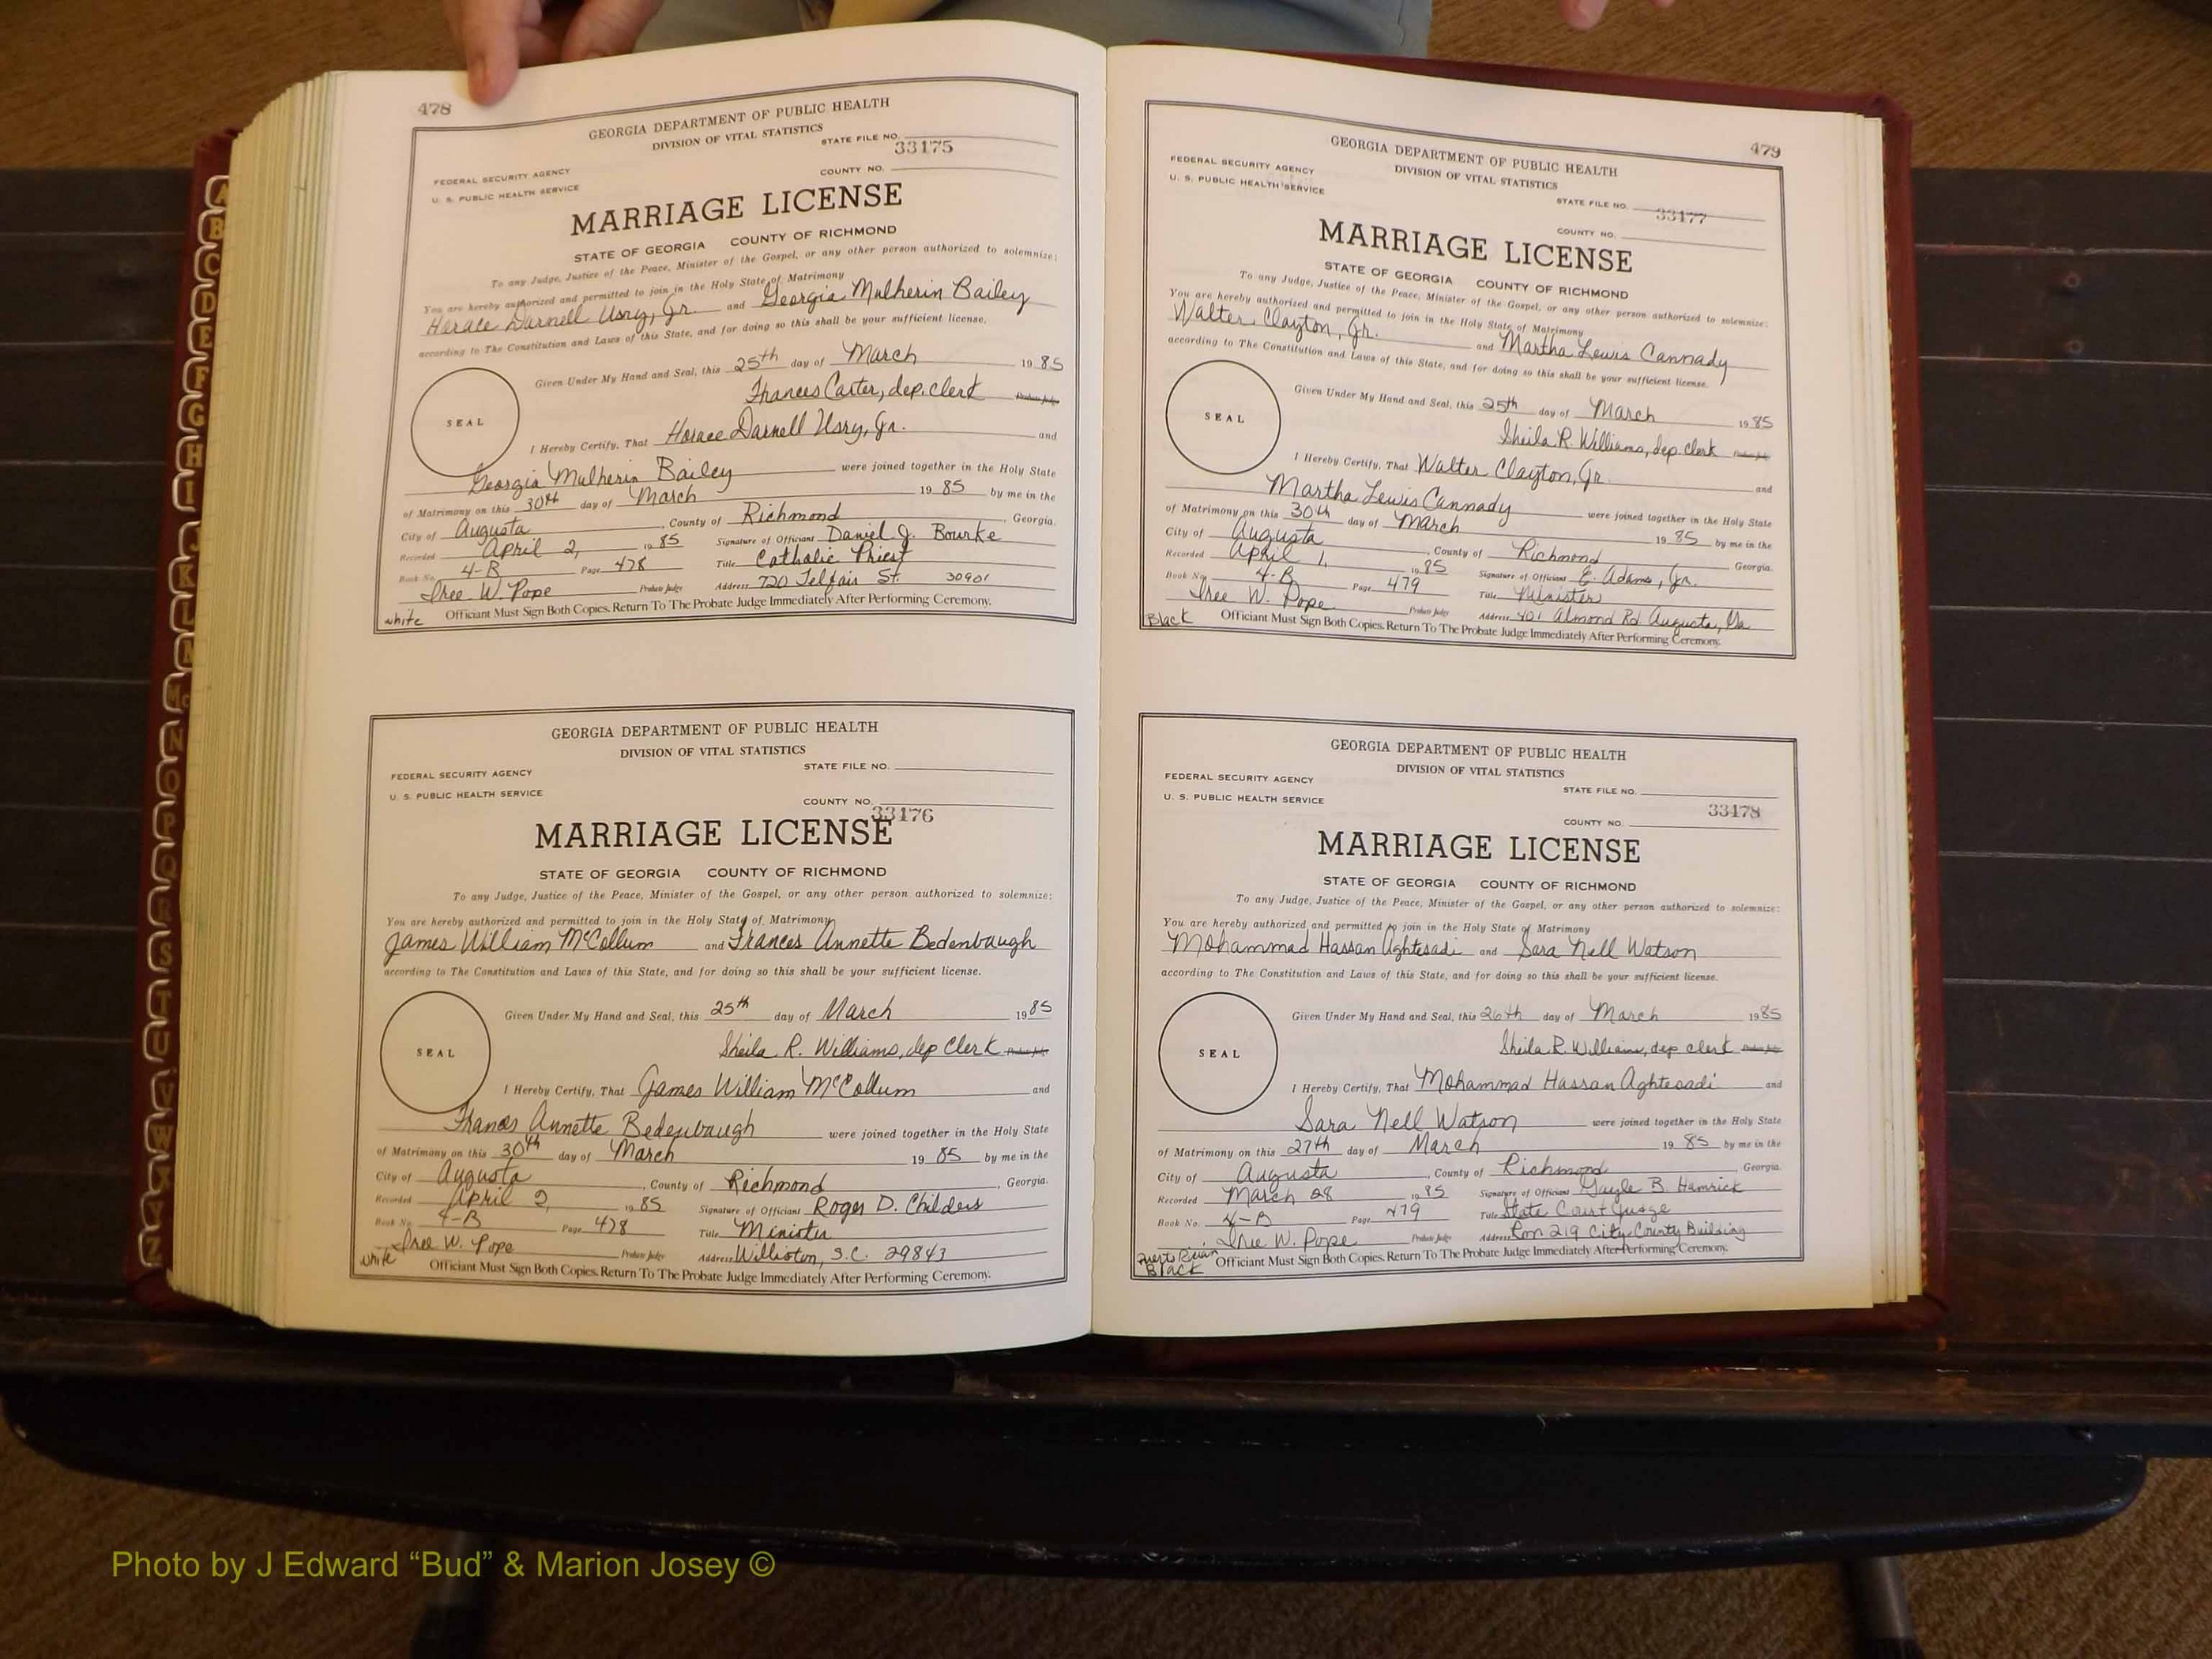 478
GEORGIA DEPARTMENT OF PUBLIC HEALTH
DIVISION OF VITAL STATISTICS
STATE FILE NO.
33175
FEDERAL SECURITY AGENCY
U. S. PUBLIC HEALTH SERVICE
COUNTY NO.
MARRIAGE LICENSE
STATE OF GEORGIA COUNTY OF RICHMOND
To any Judge, Justice of the Peace, Minister of the Gospel, or any other person authorized to solemnize:
You are hereby authorized and permitted to join in the Holy State of Matrimony
Horace Darnell Usry, Jr. and Georgia Mulherin Bailey
according to The Constitution and Laws of this State, and for doing so this shall be your sufficient license.
Given Under My Hand and Seal, this 25th day of March 1985
Frances Carter, dep. clerk Probate Judge
SEAL
I Hereby Certify, That Horace Darnell Usry, Jr. and
Georgia Mulherin Bailey were joined together in the Holy State
of Matrimony on this 30th day of March 1985 by me in the
City of Augusta, County of Richmond, Georgia.
Recorded April 2, 1985 Signature of Officiant Daniel J. Bourke
Book No. 4-B Page 478 Title Catholic Priest
Iree W. Pope Probate Judge Address 720 Telfair St. 30901
white Officiant Must Sign Both Copies. Return To The Probate Judge Immediately After Performing Ceremony.
GEORGIA DEPARTMENT OF PUBLIC HEALTH
DIVISION OF VITAL STATISTICS
STATE FILE NO.
FEDERAL SECURITY AGENCY
U. S. PUBLIC HEALTH SERVICE
COUNTY NO.
33176
MARRIAGE LICENSE
STATE OF GEORGIA COUNTY OF RICHMOND
To any Judge, Justice of the Peace, Minister of the Gospel, or any other person authorized to solemnize:
You are hereby authorized and permitted to join in the Holy State of Matrimony
James William McCollum and Frances Annette Bedenbaugh
according to The Constitution and Laws of this State, and for doing so this shall be your sufficient license.
Given Under My Hand and Seal, this 25th day of March 1985
Sheila R. Williams, dep Clerk Probate Judge
SEAL
I Hereby Certify, That James William McCollum and
Frances Annette Bedenbaugh were joined together in the Holy State
of Matrimony on this 30th day of March 1985 by me in the
City of Augusta, County of Richmond, Georgia.
Recorded April 2, 1985 Signature of Officiant Roger D. Childers
Book No. 4-B Page 478 Title Minister
Iree W. Pope Probate Judge Address Williston, S.C. 29843
white Officiant Must Sign Both Copies. Return To The Probate Judge Immediately After Performing Ceremony.
479
GEORGIA DEPARTMENT OF PUBLIC HEALTH
DIVISION OF VITAL STATISTICS
FEDERAL SECURITY AGENCY
U. S. PUBLIC HEALTH SERVICE
STATE FILE NO. 33177
COUNTY NO.
MARRIAGE LICENSE
STATE OF GEORGIA COUNTY OF RICHMOND
To any Judge, Justice of the Peace, Minister of the Gospel, or any other person authorized to solemnize:
You are hereby authorized and permitted to join in the Holy State of Matrimony
Walter Clayton, Jr. and Martha Lewis Cannady
according to The Constitution and Laws of this State, and for doing so this shall be your sufficient license.
Given Under My Hand and Seal, this 25th day of March 1985
Sheila R. Williams, dep. clerk Probate Judge
SEAL
I Hereby Certify, That Walter Clayton, Jr. and
Martha Lewis Cannady were joined together in the Holy State
of Matrimony on this 30th day of March 1985 by me in the
City of Augusta, County of Richmond Georgia.
Recorded April 1, 1985 Signature of Officiant E. Adams, Jr.
Book No. 4-B Page 479 Title Minister
Iree W. Pope Probate Judge Address 401 Almond Rd Augusta, Ga
Black Officiant Must Sign Both Copies. Return To The Probate Judge Immediately After Performing Ceremony.
GEORGIA DEPARTMENT OF PUBLIC HEALTH
DIVISION OF VITAL STATISTICS
FEDERAL SECURITY AGENCY
STATE FILE NO.
U. S. PUBLIC HEALTH SERVICE
33178
COUNTY NO.
MARRIAGE LICENSE
STATE OF GEORGIA COUNTY OF RICHMOND
To any Judge, Justice of the Peace, Minister of the Gospel, or any other person authorized to solemnize:
You are hereby authorized and permitted to join in the Holy State of Matrimony
Mohammad Hassan Aghtesadi and Sara Nell Watson
according to The Constitution and Laws of this State, and for doing so this shall be your sufficient license.
Given Under My Hand and Seal, this 26th day of March 1985
Sheila R. Williams, dep clerk Probate Judge
SEAL
I Hereby Certify, That Mohammad Hassan Aghtesadi and
Sara Nell Watson were joined together in the Holy State
of Matrimony on this 27th day of March 1985 by me in the
City of Augusta, County of Richmond, Georgia.
Recorded March 28 1985 Signature of Officiant Gayle B. Hamrick
Book No. 4-B Page 479 Title State Court Judge
Iree W. Pope Probate Judge Address Rm 219 City-County Building
Black Officiant Must Sign Both Copies. Return To The Probate Judge Immediately After Performing Ceremony.
A
B
C
D
E
F
G
H
I
J
K
L
M
Mc
N
O
P
Q
R
S
T
U
V
W
X
Y
Z
Photo by J Edward “Bud” & Marion Josey ©